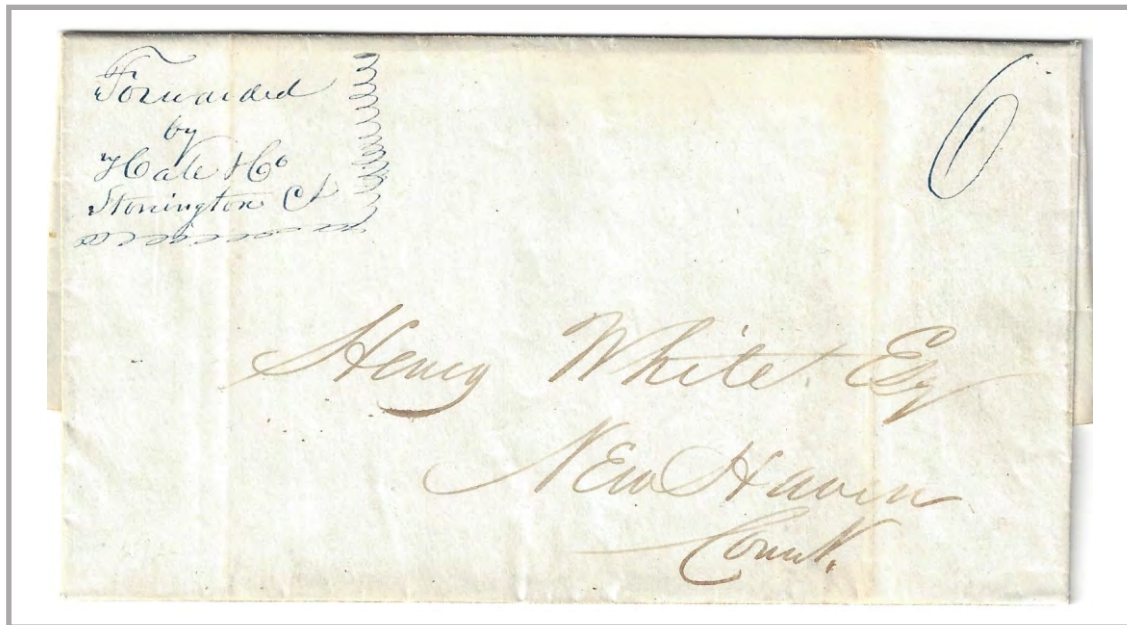 Forwarded
by
Hale & Co
Stonington Ct
6
Henry White Esq
New Haven
Connt.